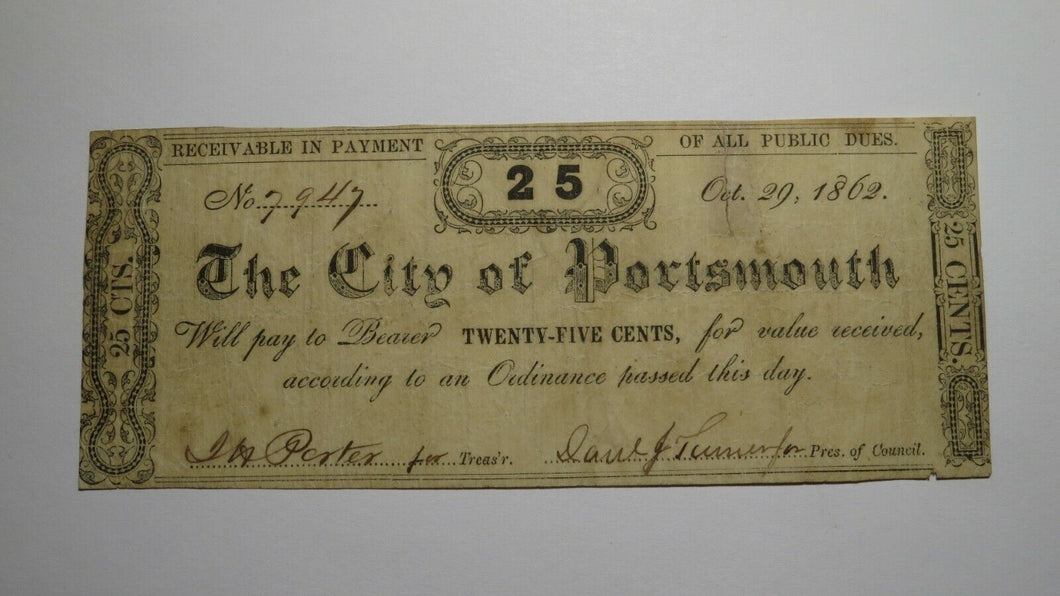 RECEIVABLE IN PAYMENT OF ALL PUBLIC DUES.
25
No 7947
Oct. 29, 1862.
The City of Portsmouth
Will pay to Bearer TWENTY-FIVE CENTS, for value received,
according to an Ordinance passed this day.
Porter for Treas'r.
J Turner for Pres. of Council.
25 CTS.
25 CENTS.